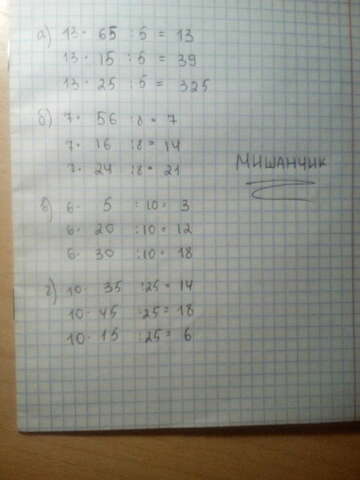 а) 13· 65 :5 = 13
13· 15 :5 = 39
13· 25 :5 = 325
б) 7· 56 :8 = 7
7· 16 :8= 14
7· 24 :8= 21
МИШАНЧИК
в) 6· 5 :10= 3
6· 20 :10= 12
6· 30 :10= 18
г) 10· 35 :25= 14
10· 45 :25= 18
10· 15 :25= 6